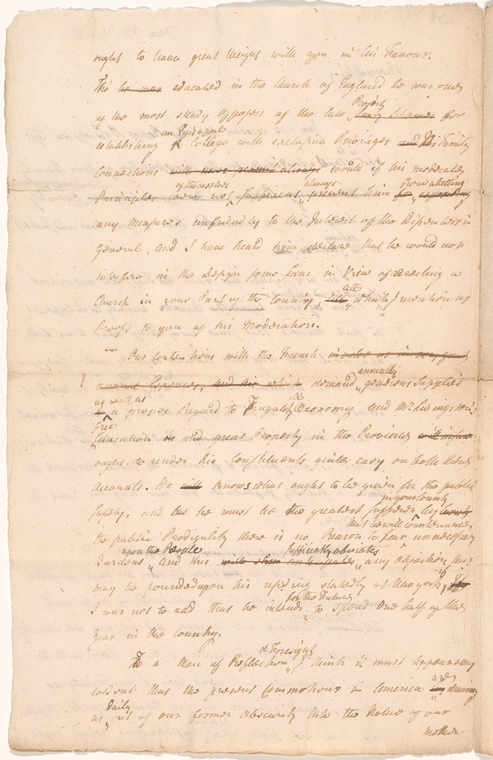 ought to have great Weight with you in his Favour.
Tho' he was educated in the Church of England he was one
of the most steady Opposers of the late Party Scheme for
establishing an Episcopal College with exclusive Privileges and His Family
Connections would if his moderate
Principles were not sufficient of themselves always prevent him from abetting
any Measures unfriendly to the Interest of the Dissenters in
general. And I have heard him declare that he would not
interfere in the Design some have in View of erecting a
Church in your Part of the County all which I mention as
Proofs to you of his Moderation.
Our Contentions with the French
demand annually generous Supplies
as well as a precise Regard to Frugality & Oeconomy and Mr. Livingston's
free Education and great Property in the Province
ought to render his Constituents quite easy on both these
Accounts. He knows what ought to be given for the public
Safety, and as he must be the greatest Sufferer in your County by
the public Prodigality there is no Reason to fear that he will countenance unnecessary
Burdens upon the People and this sufficiently obviates any Objection that
may be founded upon his residing statedly at New York, if
I was not to add that he intends for the Future to spend one half of the
year in the Country.
To a Man of Reflection & Foresight I think it must appear very
evident that the present Commotions in America are drawing
us daily out of our former Obscurity into the Notice of our
Mother